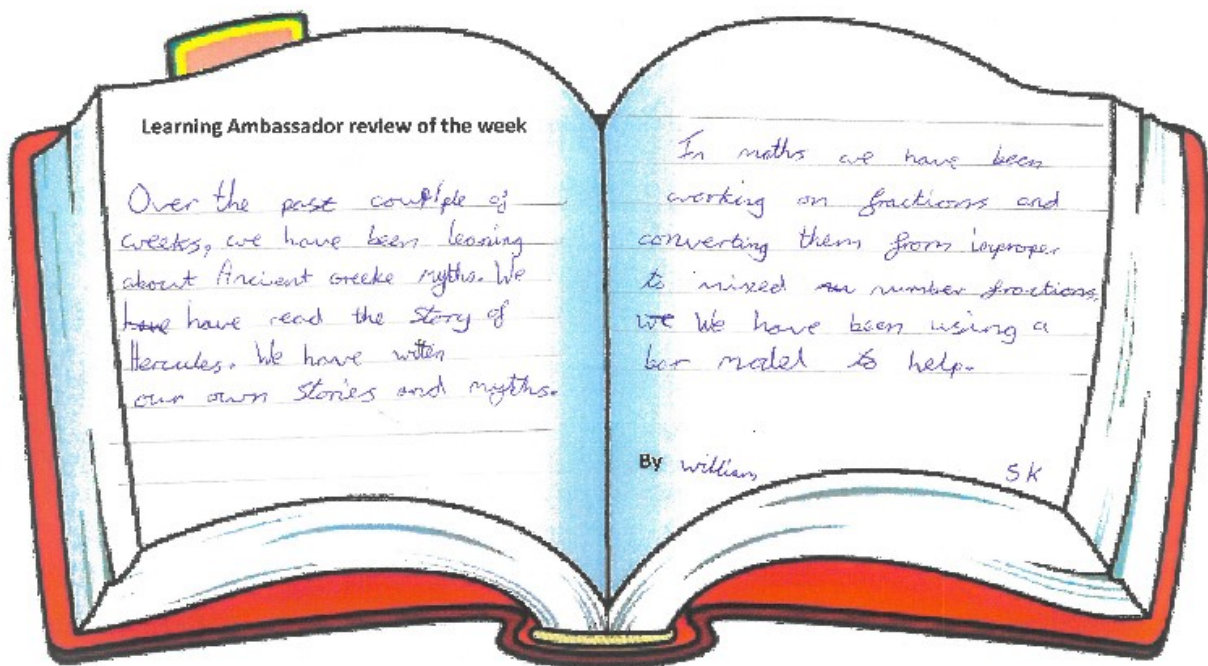 Learning Ambassador review of the week
Over the past couple of
weeks, we have been learing
about Ancient Greeke myths. We
have have read the story of
Hercules. We have witten
our own stories and myths.
In maths we have been
working on fractions and
converting them from improper
to mixed number fractions.
we We have been using a
bar model to help.
By William 5K